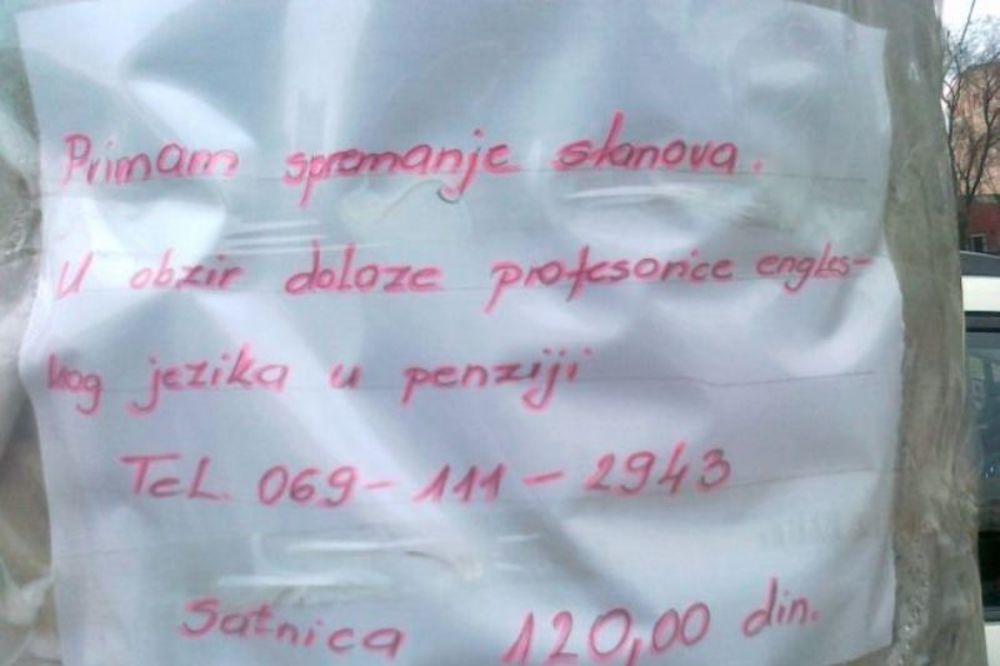 Primam spremanje stanova.
U obzir dolaze profesorice engles-
kog jezika u penziji
Tel. 069-111-2943
Satnica 120,00 din.